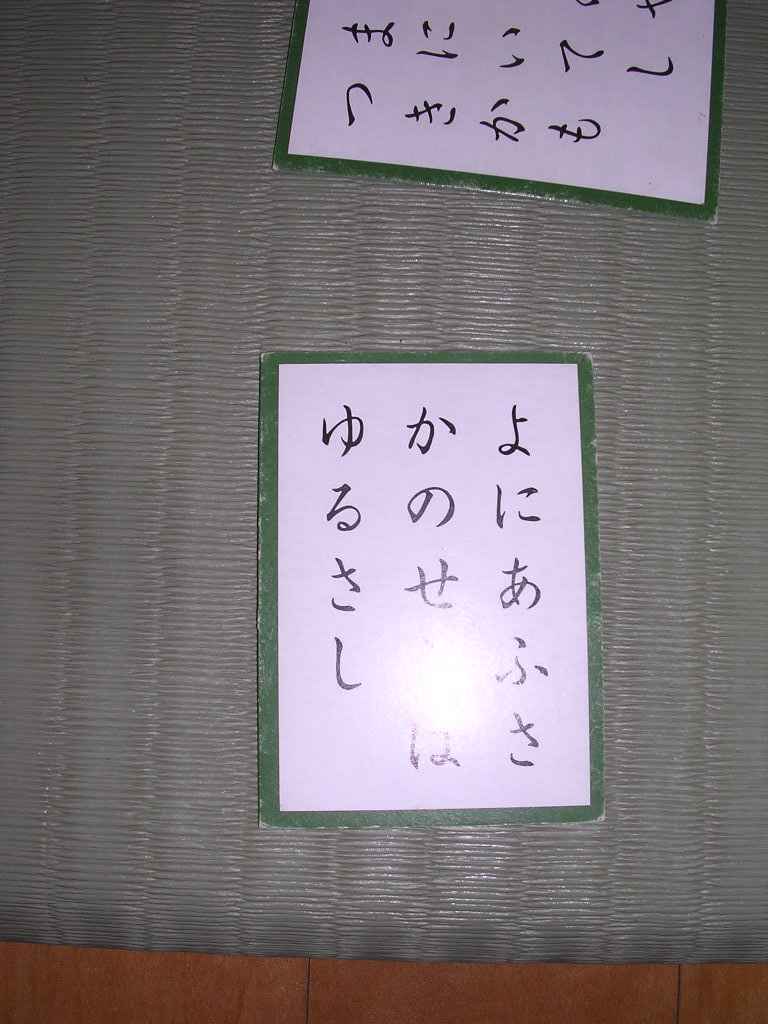 まにいてし
つきかも
よにあふさ
かのせ は
ゆるさし